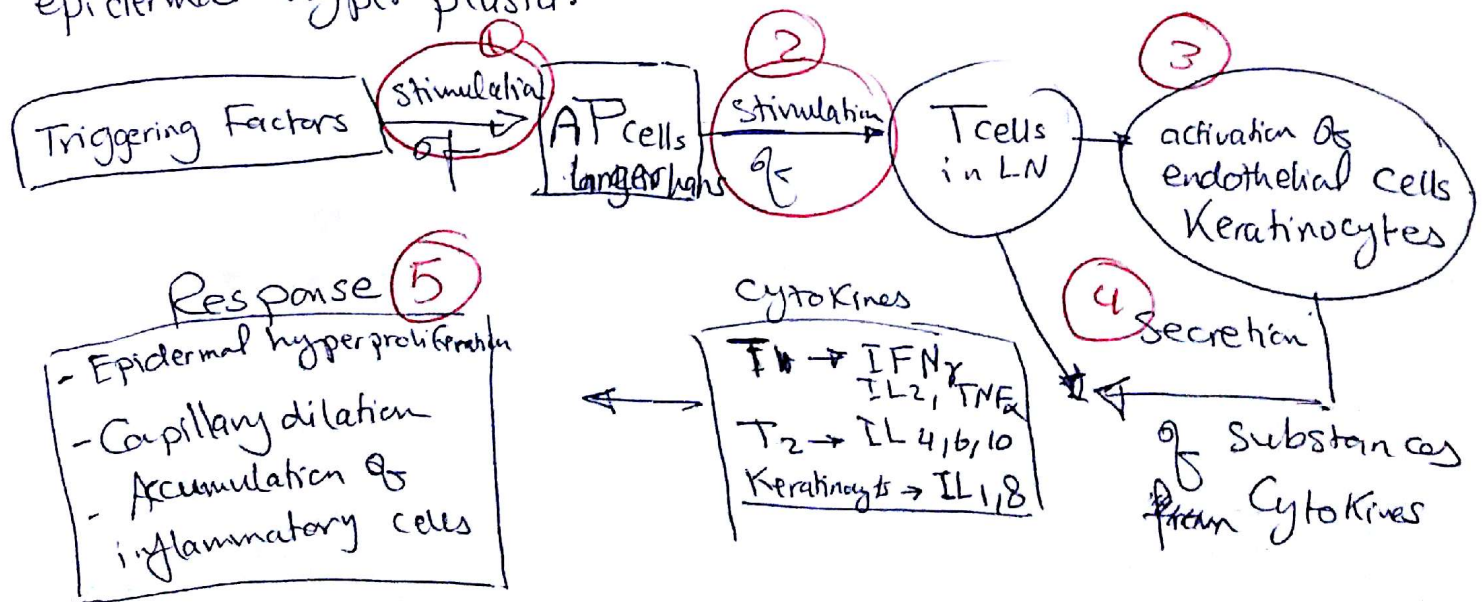 epidermal hyperplasia.
1
2
3
Triggering Factors
stimulation
of
AP cells
langerhans
stimulation
of
T cells
in LN
activation of
endothelial cells
Keratinocytes
4
Secretion
of substances
from Cytokines
Cytokines
T1 → IFNγ
IL2, TNFα
T2 → IL 4,6,10
Keratinocyts → IL1,8
Response 5
- Epidermal hyperproliferation
- Capillary dilation
- Accumulation of
inflammatory cells